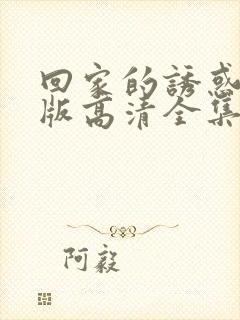 回家的誘惑
版高清全集
阿毅